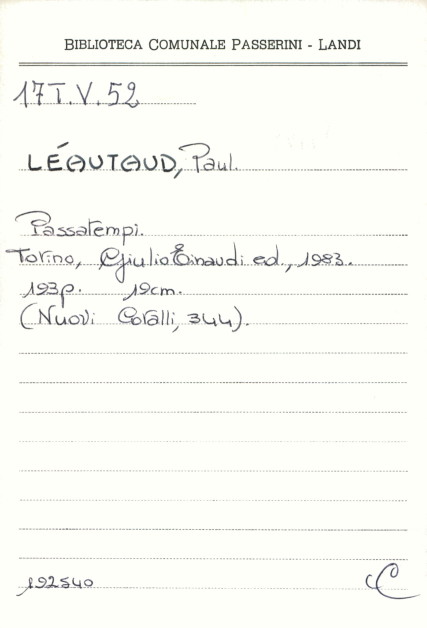 BIBLIOTECA COMUNALE PASSERINI - LANDI
17T.V.52
LÉAUTAUD, Paul.
Passatempi.
Torino, Giulio Einaudi ed., 1983.
193p. 19cm.
(Nuovi Coralli, 344).
192540
C